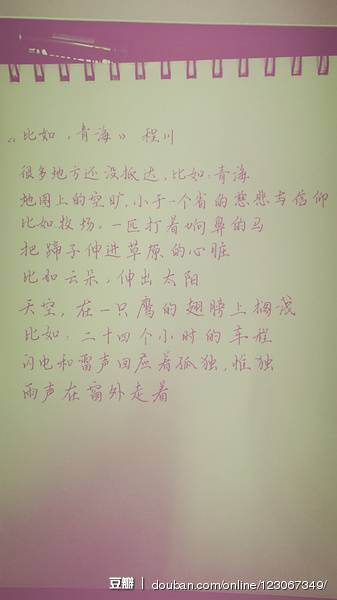 《比如，青海》 程川
很多地方还没抵达，比如：青海
地图上的空旷，小于一个省的慈悲与信仰
比如牧场。一匹打着响鼻的马
把蹄子伸进草原的心脏
比如云朵，伸出太阳
天空，在一只鹰的翅膀上搁浅
比如：二十四个小时的车程
闪电和雷声回应着孤独，惟独
雨声在窗外走着
豆瓣 | douban.com/online/123067349/